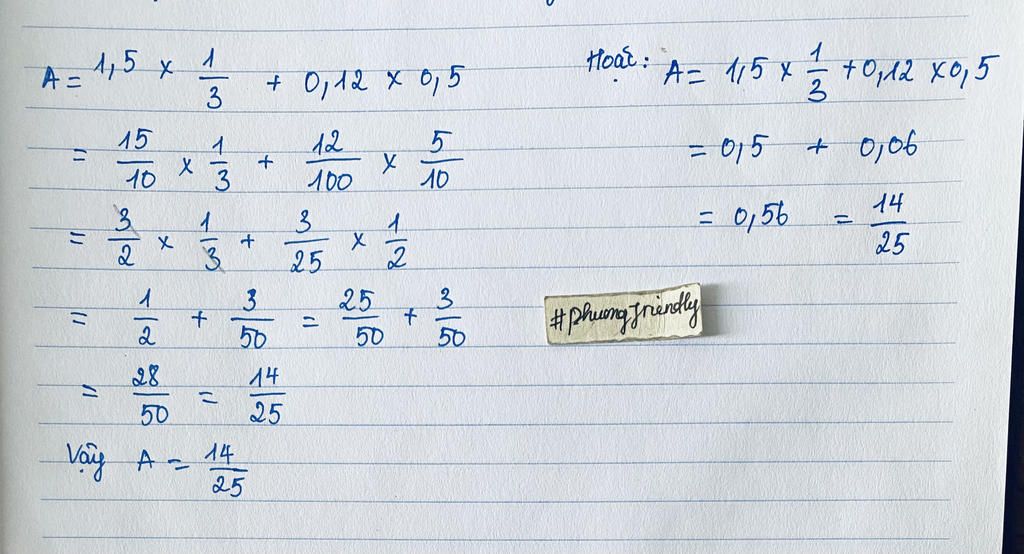 A = 1,5 × 1/3 + 0,12 × 0,5
= 15/10 × 1/3 + 12/100 × 5/10
= 3/2 × 1/3 + 3/25 × 1/2
= 1/2 + 3/50 = 25/50 + 3/50
= 28/50 = 14/25
Vậy A = 14/25
Hoặc: A = 1,5 × 1/3 + 0,12 × 0,5
= 0,5 + 0,06
= 0,56 = 14/25
#phuongfriendly